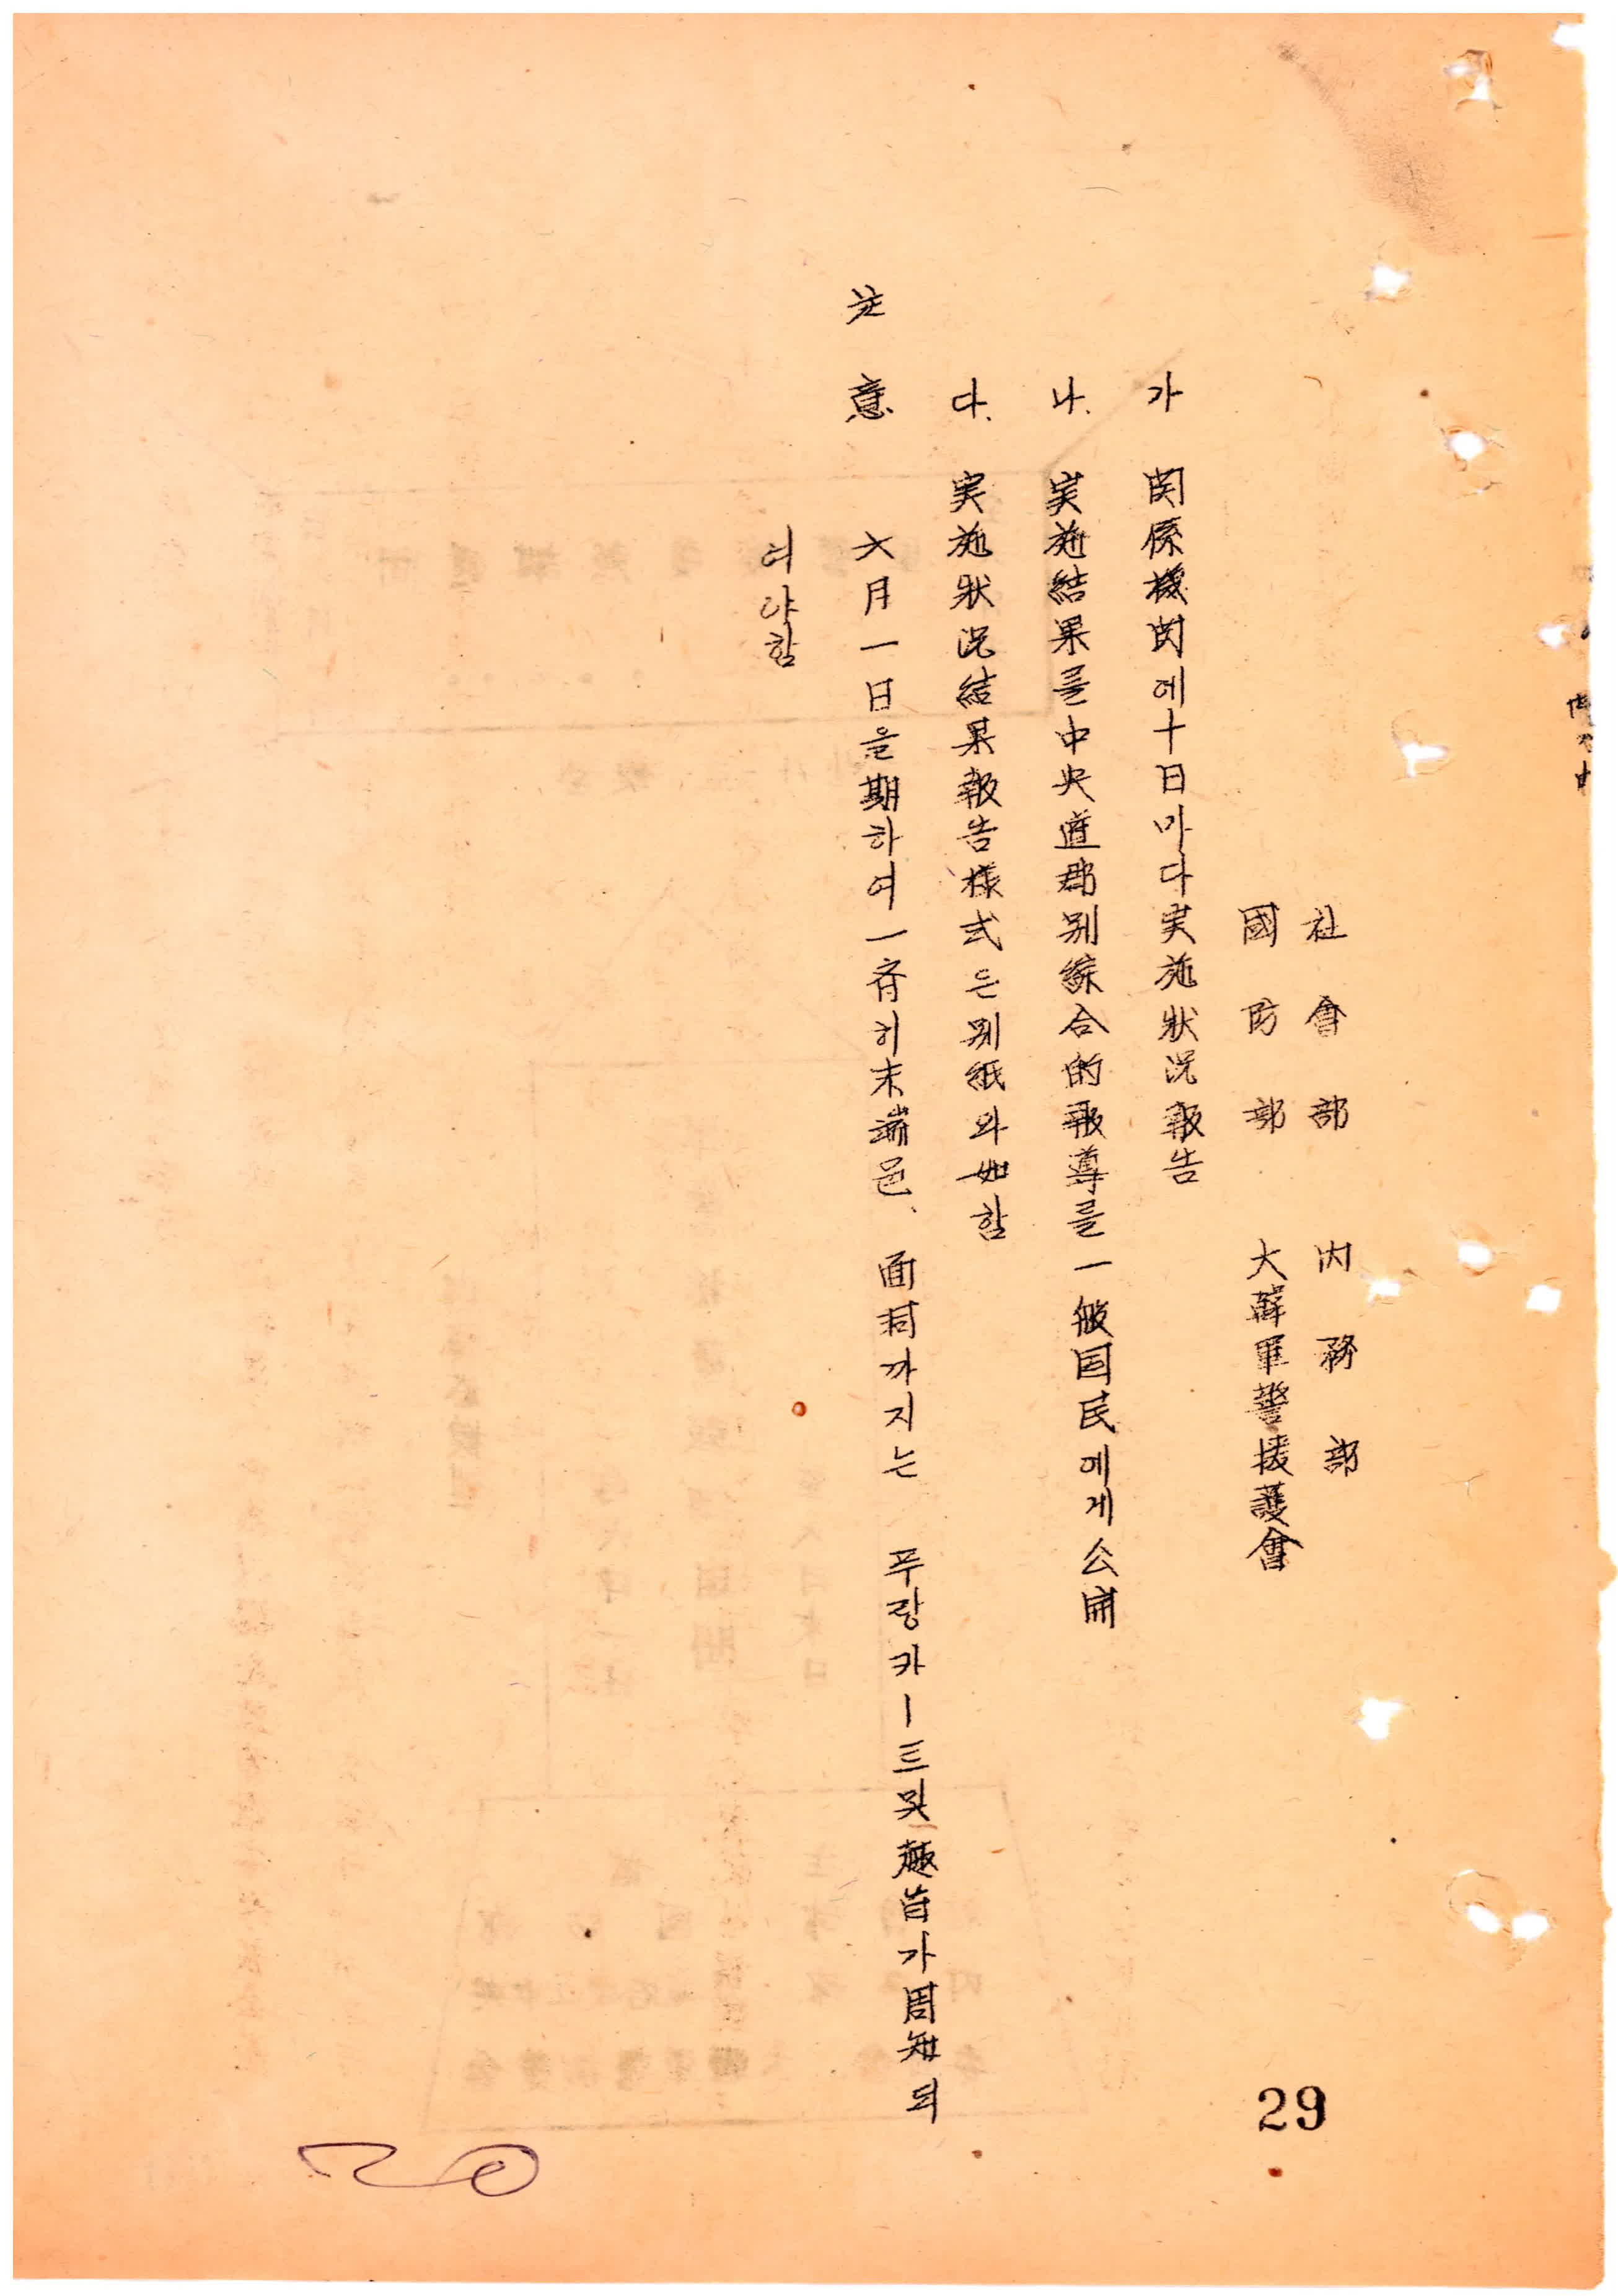 社會部 內務部
國防部 大韓軍警援護會
가 関係機関에十日마다実施狀況報告
나. 実施結果를中央道郡別綜合的報導를一般国民에게公開
다. 実施狀況結果報告樣式은別紙와如함
注意 六月一日을期하여一斉히末端邑、面村까지는 푸랑카ー三및趣旨가周知되
여야함
29